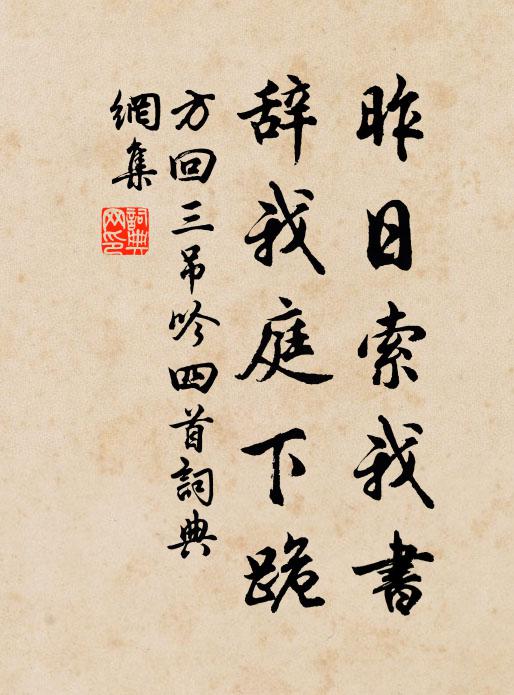 昨日索我書
辞我庭下跪
方回三吊吟四首詞典
網集
詞典
网印